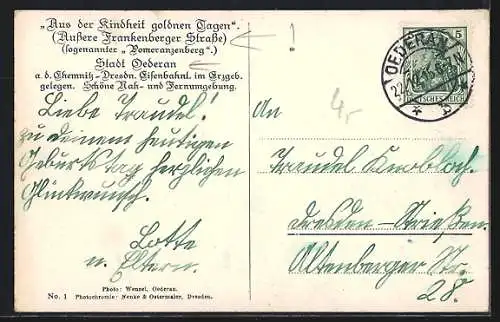 „Aus der Kindheit goldnen Tagen“.
(Äußere Frankenberger Straße)
(sogenannter „Pomeranzenberg“.)
Stadt Oederan
a. d. Chemnitz-Dresdn. Eisenbahnl. im Erzgeb.
gelegen. Schöne Nah- und Fernumgebung.
Liebe Traudel!
zu deinem heutigen
Geburtstag herzlichen
Glückwunsch.
Lotte
u. Eltern.
Photo: Wenzel, Oederan.
No. 1 Photochromie: Nenke & Ostermaier, Dresden.
!
4,-
OEDERAN
5
DEUTSCHES REICH
An
Traudel Knobloch.
Dresden-Striesen.
Altenberger Str.
28.